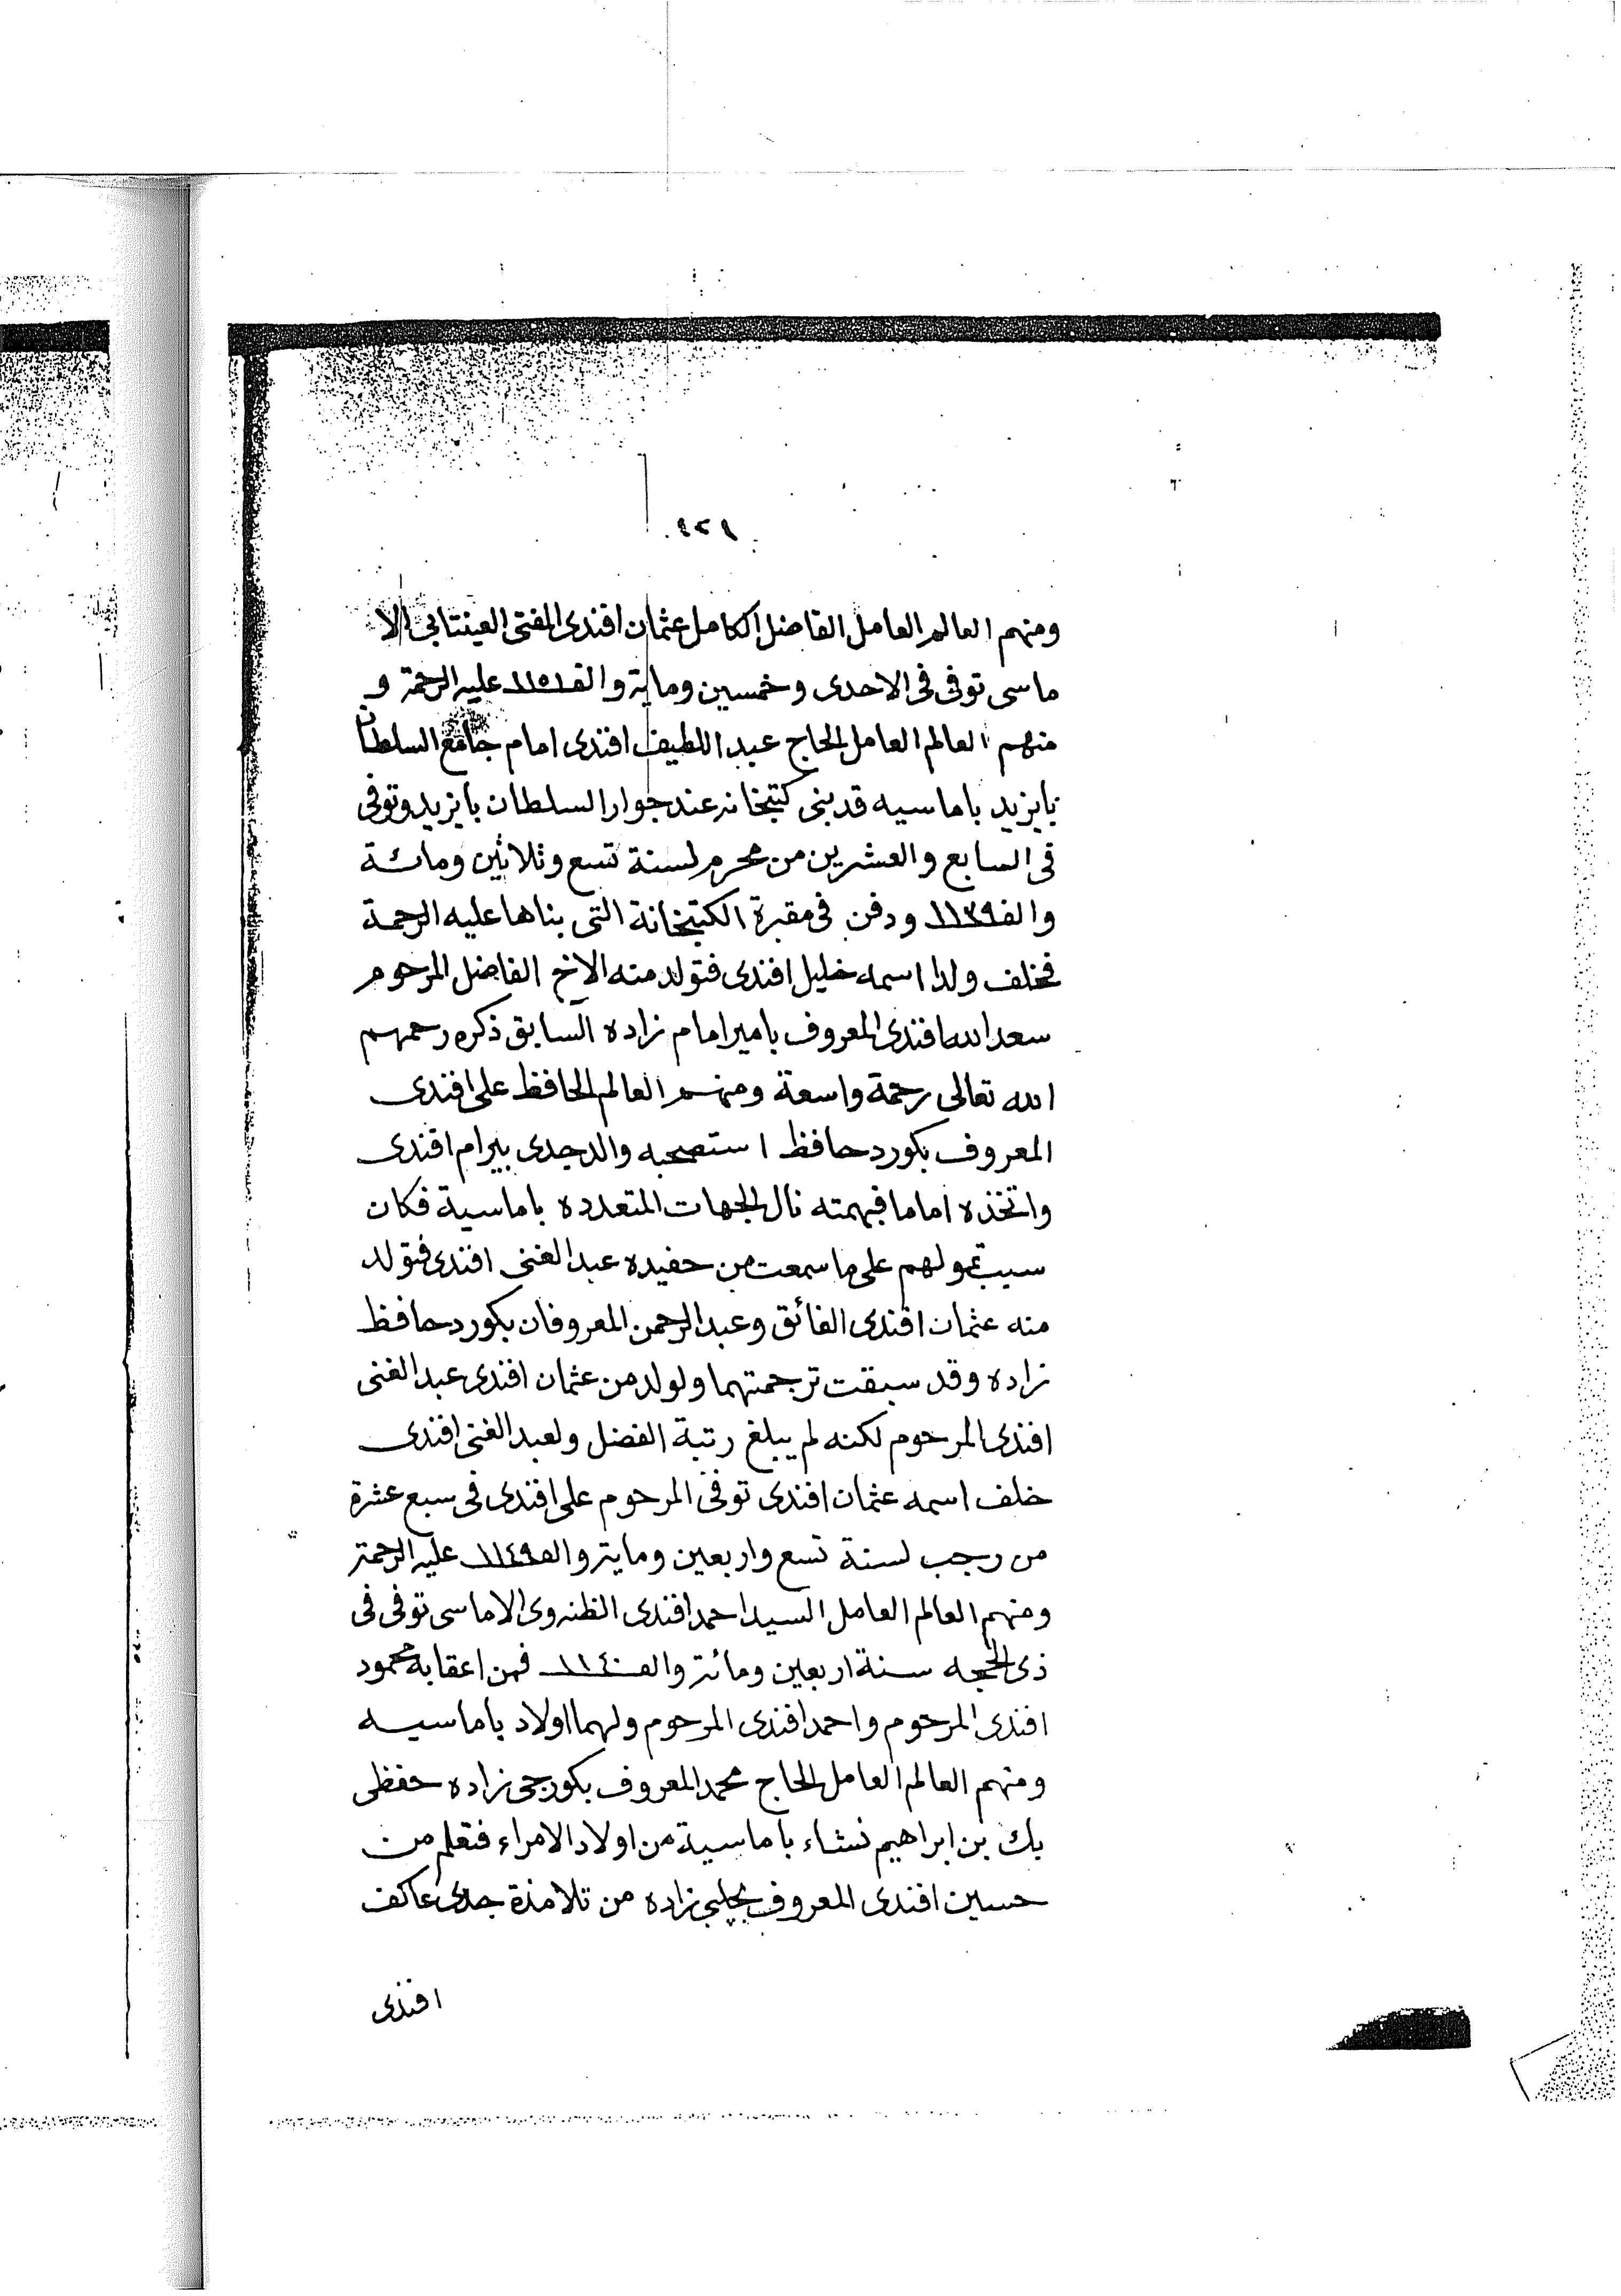 ٩٢٩
ومنهم العالم العامل الفاضل الكامل عثمان افندى المفتى العينتابى الا
ماسى توفى فى الاحدى وخمسين وماية والف ١١٥١ عليه الرحمة و
منهم العالم العامل الحاج عبد اللطيف افندى امام جامع السلطان
بايزيد باماسيه قد بنى كتبخانه عند جوار السلطان بايزيد وتوفى
فى السابع والعشرين من محرم لسنة تسع وثلاثين ومائة
والف ١١٣٩ ودفن فى مقبرة الكتبخانة التى بناها عليه الرحمة
فخلف ولدا اسمه خليل افندى فتولد منه الاخ الفاضل المرحوم
سعد الله افندى المعروف بامير امام زاده السابق ذكره رحمهم
الله تعالى رحمة واسعة ومنهم العالم الحافظ على افندى
المعروف بكورد حافظ استصحبه والد جدى بيرام افندى
واتخذه اماما فبهمته نال الجهات المتعدده باماسية فكان
سبب تمولهم على ما سمعت من حفيده عبد الغنى افندى فتولد
منه عثمان افندى الفائق وعبد الرحمن المعروفان بكورد حافظ
زاده وقد سبقت ترجمتهما ولولد من عثمان افندى عبد الغنى
افندى المرحوم لكنه لم يبلغ رتبة الفضل ولعبد الغنى افندى
خلف اسمه عثمان افندى توفى المرحوم على افندى فى سبع عشرة
من رجب لسنة تسع واربعين وماية والف ١١٤٩ عليه الرحمة
ومنهم العالم العامل السيد احمد افندى الظنوى الاماسى توفى فى
ذى الحجه سنة اربعين ومائة والف ١١٤٠ فمن اعقابه محمود
افندى المرحوم واحمد افندى المرحوم ولهما اولاد باماسيه
ومنهم العالم العامل الحاج محمد المعروف بكورجى زاده حفظى
بك بن ابراهيم نشاء باماسية من اولاد الامراء فتعلم من
حسين افندى المعروف بچلبى زاده من تلامذة جدى عاكف
افندى